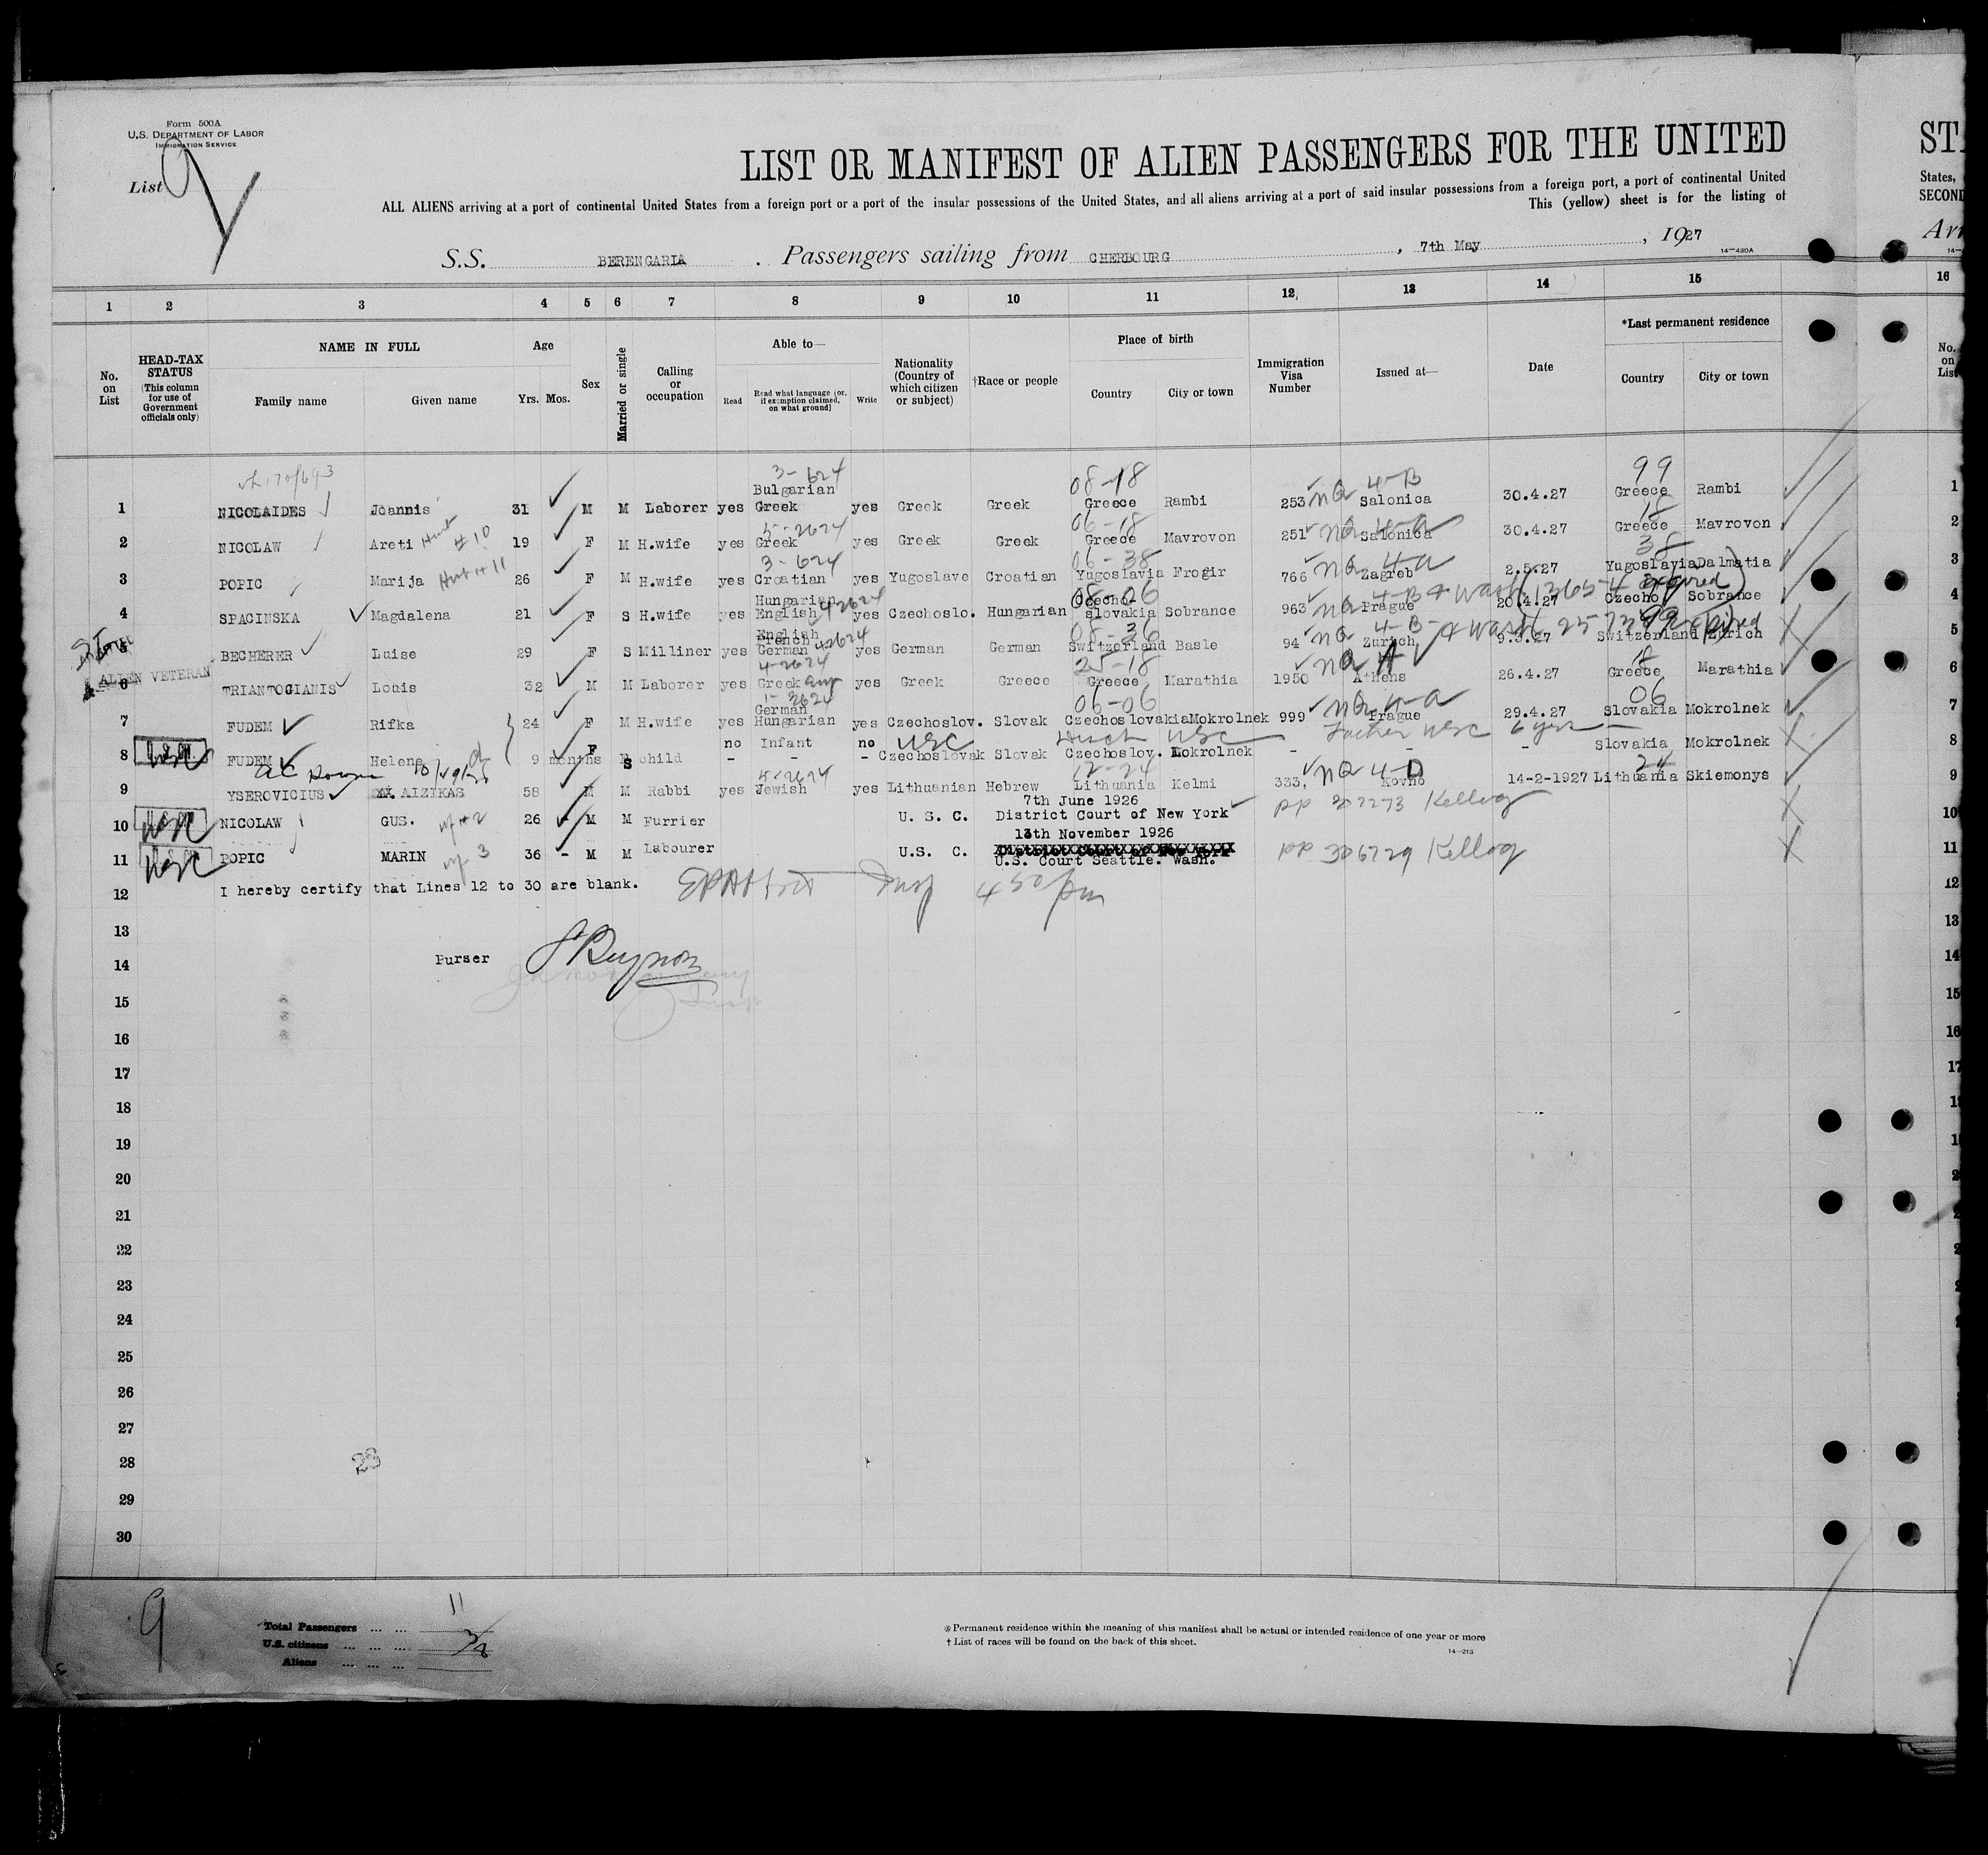 Form 500A
U.S. DEPARTMENT OF LABOR
IMMIGRATION SERVICE
List 9
LIST OR MANIFEST OF ALIEN PASSENGERS FOR THE UNITED
ALL ALIENS arriving at a port of continental United States from a foreign port or a port of the insular possessions of the United States, and all aliens arriving at a port of said insular possessions from a foreign port, a port of continental United
This (yellow) sheet is for the listing of
S.S. BERENGARIA . Passengers sailing from CHERBOURG , 7th May , 1927
14—430A
STA
States,
SECOND
Arr
1 2 3 4 5 6 7 8 9 10 11 12 13 14 15 16
No. on List
HEAD-TAX STATUS (This column for use of Government officials only)
NAME IN FULL
Family name
Given name
Age
Yrs. Mos.
Sex
Married or single
Calling or occupation
Able to—
Read
Read what language (or, if exemption claimed, on what ground)
Write
Nationality (Country of which citizen or subject)
†Race or people
Place of birth
Country
City or town
Immigration Visa Number
Issued at—
Date
*Last permanent residence
Country
City or town
No. on List
3-624 08-18 4-B 99
1 NICOLAIDES Joannis 31 M M Laborer yes Bulgarian Greek yes Greek Greek Greece Rambi 253 NQ Salonica 30.4.27 Greece Rambi 1
5-2624 06-18 4-a 18
2 NICOLAW Areti #10 19 F M H.wife yes Greek yes Greek Greek Greece Mavrovon 251 NQ Salonica 30.4.27 Greece Mavrovon 2
3-624 06-38 4-a 38
3 POPIC Marija #11 26 F M H.wife yes Croatian yes Yugoslave Croatian Yugoslavia Frogir 766 NQ Zagreb 2.5.27 Yugoslavia Dalmatia 3
4-2624 08-06 4-B
4 SPACINSKA Magdalena 21 F S H.wife yes Hungarian English yes Czechoslo. Hungarian Czecho-slovakia Sobrance 963 NQ Prague 20.4.27 Czecho Sobrance 4
4-2624 08-36 4-B 99
5 BECHERER Luise 29 F S Milliner yes English French German yes German German Switzerland Basle 94 NQ Zurich 9.3.27 Switzerland Zurich 5
ALIEN VETERAN
4-2624 25-18 18
6 TRIANTOGIANIS Louis 32 M M Laborer yes Greek yes Greek Greece Greece Marathia 1950 NQ Athens 26.4.27 Greece Marathia 6
1-2624 06-06 4-a 06
7 FUDEM Rifka 24 F M H.wife yes German Hungarian yes Czechoslov. Slovak Czechoslovakia Mokrolnek 999 NQ Prague 29.4.27 Slovakia Mokrolnek 7
USC USC Father USC 6 yrs
8 USC FUDEM Helena 9 months F S child no - Infant - no - Czechoslovak Slovak Czechoslov. Mokrolnek - - - Slovakia Mokrolnek 8
5-2624 12-24 4-D 24
9 YSEROVICIUS AIZIKAS 58 M M Rabbi yes Jewish yes Lithuanian Hebrew Lithuania Kelmi 333, NQ Kovno 14-2-1927 Lithuania Skiemonys 9
10 USC NICOLAW GUS. 26 - M M Furrier U. S. C. 7th June 1926 District Court of New York pp 302273 Kellog 10
11 USC POPIC MARIN 36 - M M Labourer U.S. C. 13th November 1926 U.S. Court Seattle. Wash. pp Kellog 11
12 I hereby certify that Lines 12 to 30 are blank. 12
13 13
14 Purser 14
15 15
16 16
17 17
18
19
20
21
22
23
24
25
26
27
28 23
29
30
9
Total Passengers ... ... 11
U.S. citizens ... ... ... 3
Aliens ... ... ... 8
*Permanent residence within the meaning of this manifest shall be actual or intended residence of one year or more
† List of races will be found on the back of this sheet.
14—213